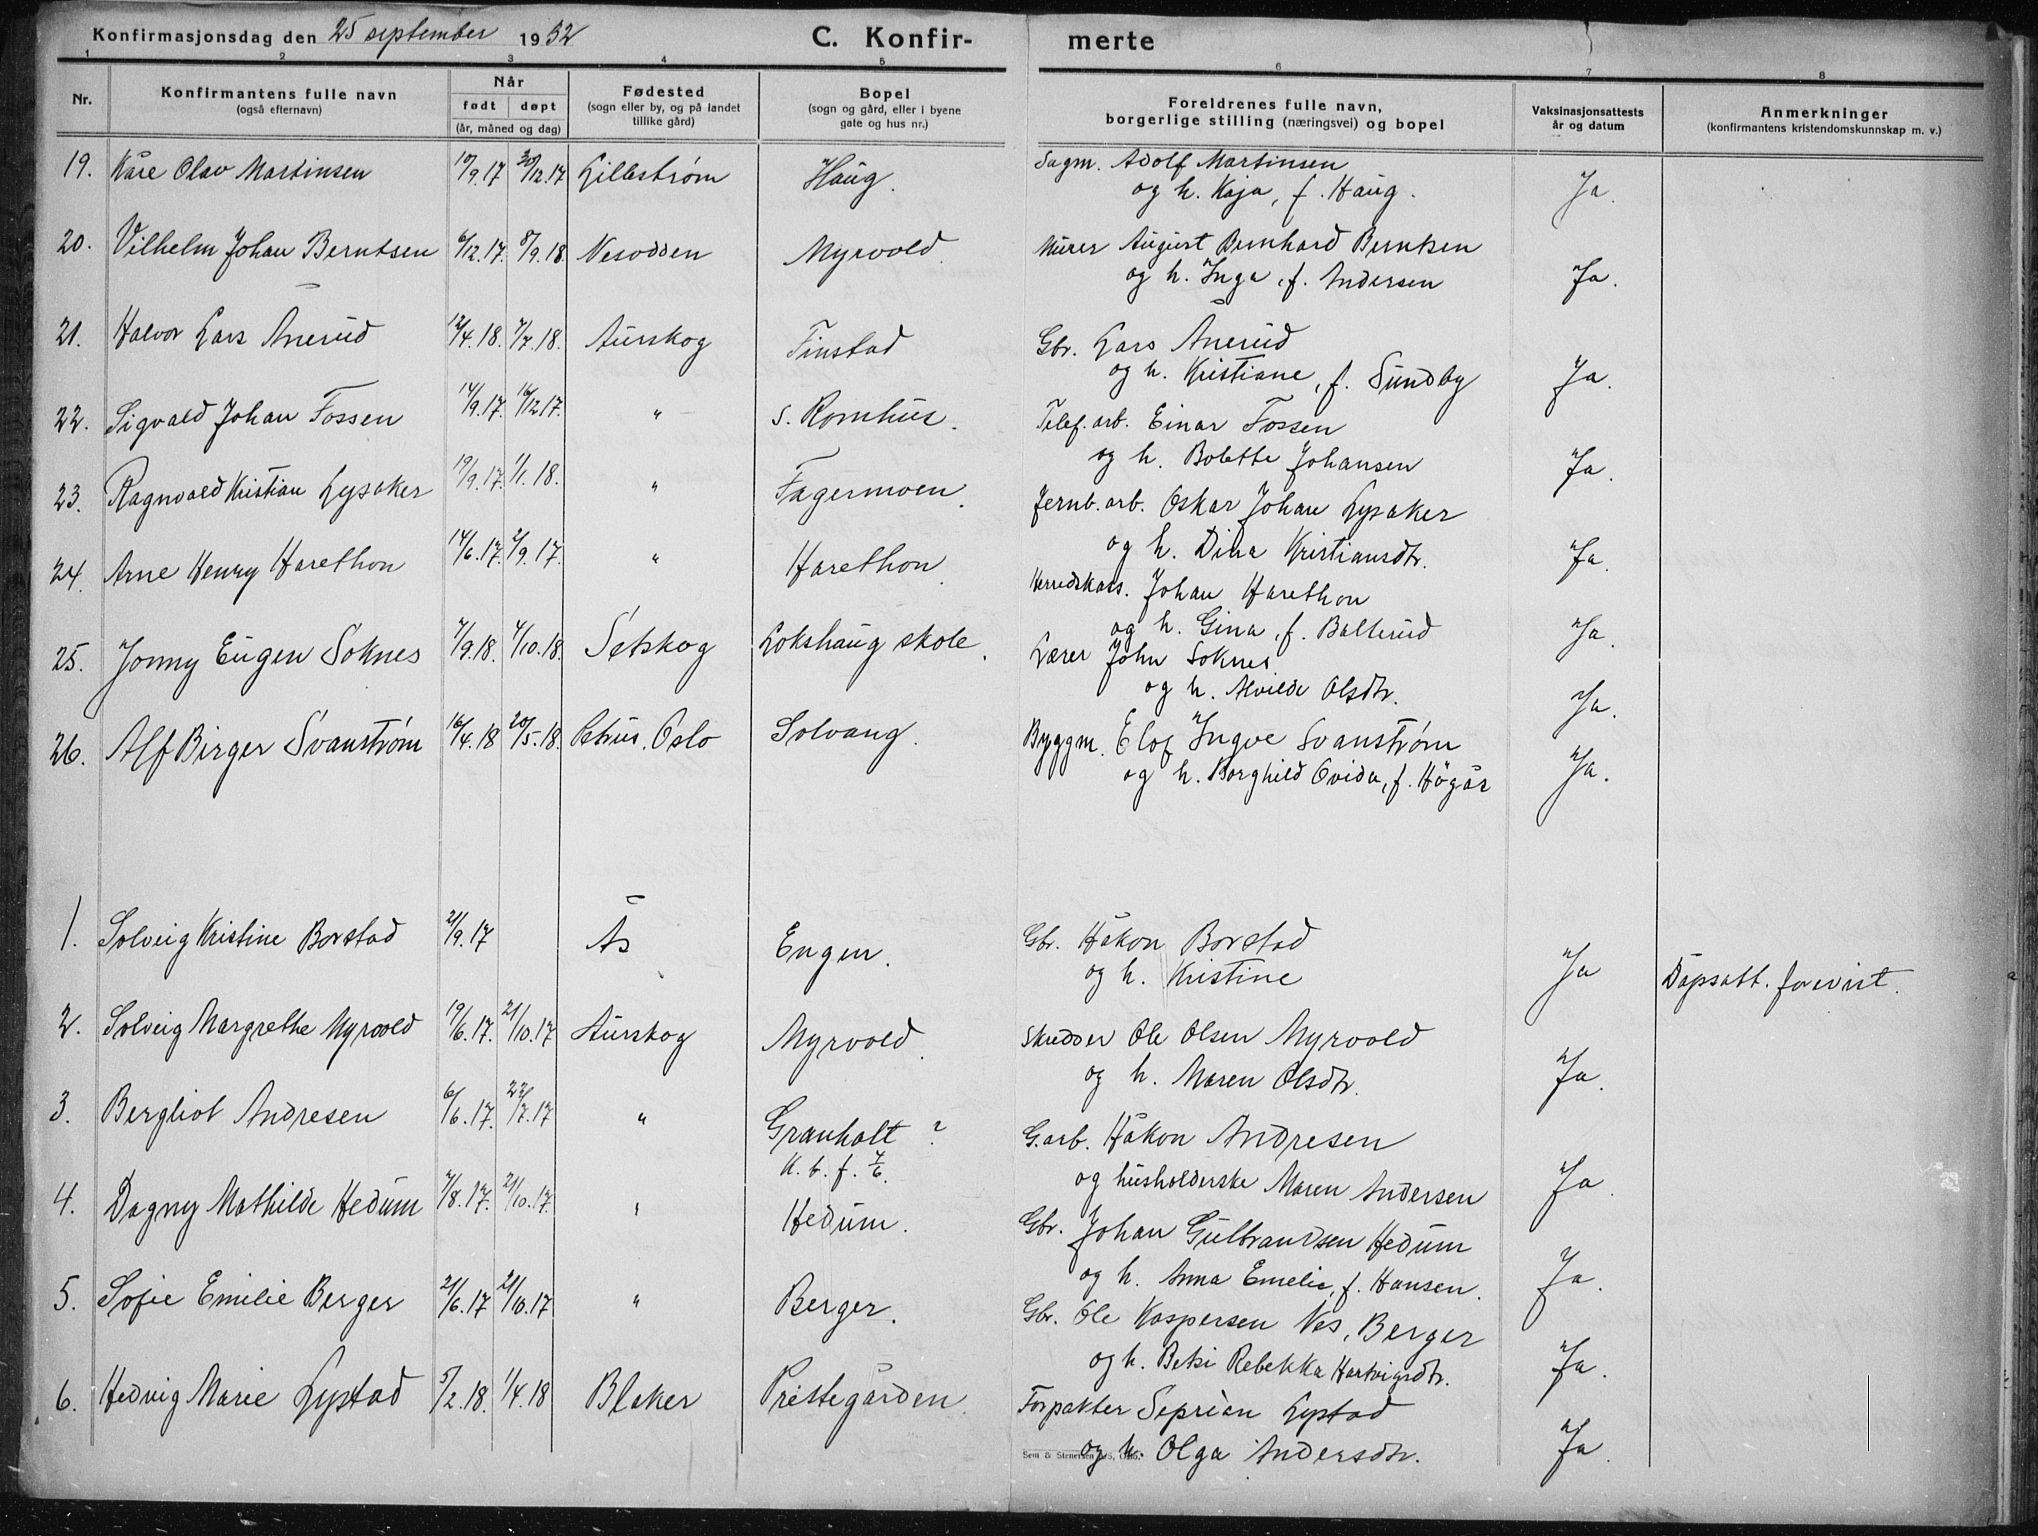 Konfirmasjonsdag den 25 september 1932 C. Konfirmerte
1 2 3 4 5 6 7 8
Nr. Konfirmantens fulle navn (også efternavn) Når født døpt (år, måned og dag) Fødested (sogn eller by, og på landet tillike gård) Bopel (sogn og gård, eller i byene gate og hus nr.) Foreldrenes fulle navn, borgerlige stilling (næringsvei) og bopel Vaksinasjonsattests år og datum Anmerkninger (konfirmantens kristendomskunnskap m. v.)
19. Kåre Olav Martinsen 10/9.17 30/12.17 Lillestrøm Haug. Sagm. Adolf Martinsen
og h. Kaja, f. Haug. Ja.
20. Vilhelm Johan Berntsen 6/12.17. 8/9.18. Nesodden Myrvold. Murer August Bernhard Berntsen
og h. Inga, f. Andersen Ja.
21. Halvor Lars Ånerud 12/4.18. 7/7.18. Aurskog Finstad Gbr. Lars Ånerud
og h. Kristiane, f. Sundby Ja.
22. Sigvald Johan Fossen 14/9.17. 16/12.17. " s. Romhus. Telef.arb. Einar Fossen
og h. Bolette Johansen Ja.
23. Ragnvald Kristian Lysaker 19/9.17. 1/1.18. " Fagermoen. Jernb.arb. Oskar Johan Lysaker
og h. Dina Kristiansdtr. Ja.
24. Arne Henry Harethon 14/6.17. 2/9.17. " Harethon. Herredskass. Johan Harethon
og h. Gina, f. Ballerud Ja.
25. Jonny Eugen Soknes 7/9.18. 4/10.18. Setskog Lokshaug skole. Lærer John Soknes
og h. Alvilde Olsdtr. Ja.
26. Alf Birger Svanstrøm 16/4.18 20/5.18. Petrus. Oslo Solvang. Byggm. Elof Ingve Svanstrøm
og h. Borghild Ovida, f. Högås Ja.
1. Solveig Kristine Borstad 21/9.17 Ås Engen. Gbr. Håkon Borstad
og h. Kristine Ja Dåpsatt. forevist.
2. Solveig Margrethe Myrvold 19/6.17. 21/10.17 Aurskog Myrvold. Skredder Ole Olsen Myrvold
og h. Maren Olsdtr. Ja.
3. Bergliot Andresen 6/6.17. 22/7.17 " Granholt ? G.arb. Håkon Andresen
K. b. f. 7/6. og husholderske Maren Andersen Ja.
4. Dagny Mathilde Hedum 7/8.17. 21/10.17. " Hedum. Gbr. Johan Gulbrandsen Hedum
og h. Anna Emelie, f. Hansen. Ja.
5. Sofie Emilie Berger 21/6.17 21/10.17 " Berger. Gbr. Ole Kaspersen Nes, Berger
og h. Betsi Rebekka Hartvigsdtr. Ja.
6. Hedvig Marie Lystad 5/2.18. 1/4.18 Blaker Prestegården. Forpakter Seprian Lystad
og h. Olga Andersdtr. Ja.
Sem & Stenersen A/S, Oslo.